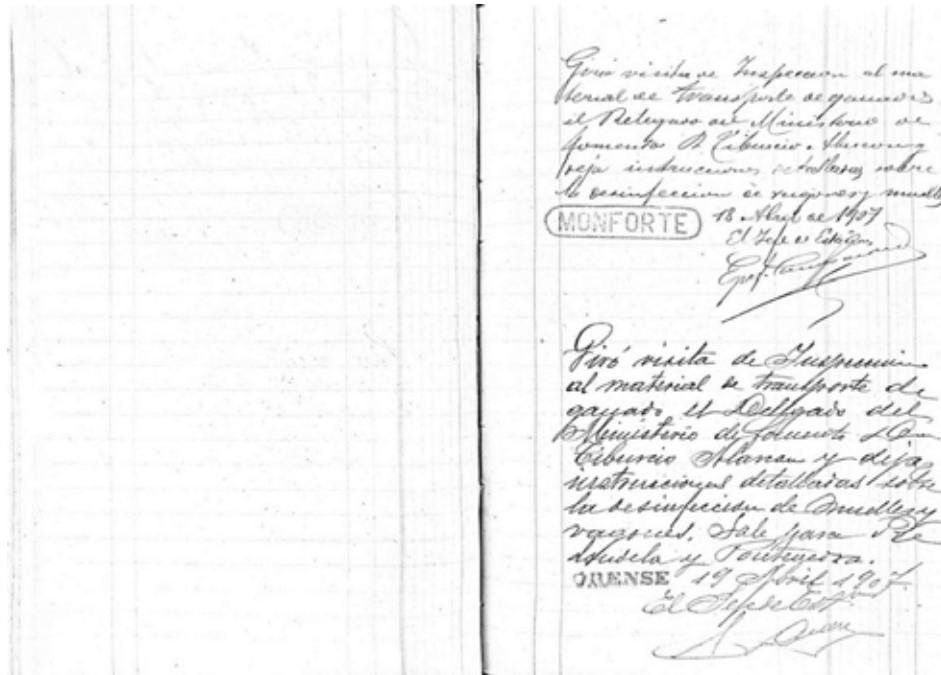 Giró visita de Inspeccion al ma
terial de transporte de ganados
el Delegado del Ministerio de
fomento D. Tiburcio Alarcon y
deja instrucciones detalladas sobre
la desinfeccion de vagones y muelles
MONFORTE 18 Abril de 1907
El Jefe de Estación
Giró visita de Inspeccion
al material de transporte de
ganado, el Delegado del
Ministerio de fomento Don
Tiburcio Alarcon y deja
instruciones detalladas sobre
la desinfeccion de muelles y
vagones. Sale para Re
dondela y Pontevedra.
ORENSE 19 Abril 1907
El Jefe de Estⁿ